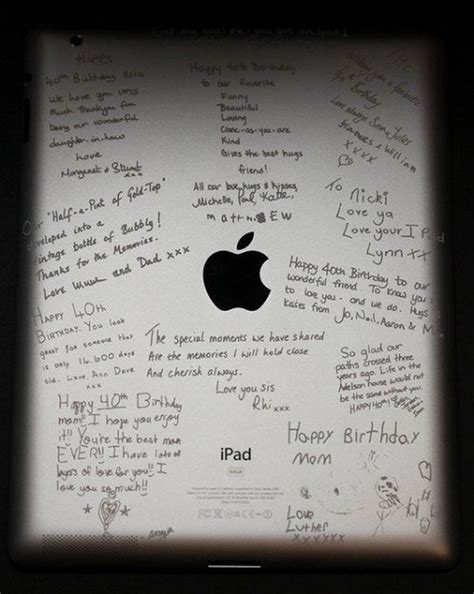 Happy
40th Birthday Nic
We love you very
much. Thankyou for
being our wonderful
daughter-in-law
love
Margaret & Stuart
xxxx
Happy 40th Birthday
to our favorite
Funny
Beautiful
Loving
Come-as-you-are
Kind
Gives the best hugs
friend!
All our love, hugs & kisses,
Michelle, Paul, Katie,
matt EW
life
a fantastic
Birthday
Love always Sam, Jules
frances & william
xxxx
To Nicki
Love ya
Love your I Pad
Lynn xx
Our "Half-a-Pint of Gold-Top"
developed into a
vintage bottle of Bubbly!
Thanks for the Memories.
Love Mum and Dad xxx
Happy 40th Birthday to our
wonderful friend. To know you is
to love you - and we do. Hugs
kisses from Jo, Neil, Aaron &
Happy 40th
Birthday. You look
great for someone that
is only 14,600 days
old. Love Ann Dave
xxx
The special moments we have shared
Are the memories I will hold close
And cherish always.
Love you sis
Rhi xxx
So glad our
paths crossed three
years ago. Life in the
Adelson house would not
be the same without you.
Happy 40th!
Happy 40th Birthday
mom!! I hope you enjoy
it!! You're the best mam
EVER!! I have lots of
layers of love for you!! I
love you so much!!
iPad
64GB
Happy Birthday
Mom
Love
Luther
xxxxxx